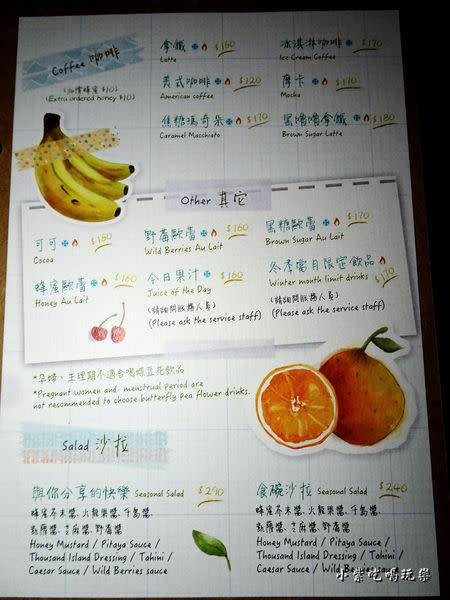 Coffee 咖啡
(加購蜂蜜 $10)
(Extra ordered honey $10)
拿鐵 $160
Latte
冰淇淋咖啡 $170
Ice Cream Coffee
美式咖啡 $120
American coffee
摩卡 $170
Mocha
焦糖瑪奇朵 $170
Caramel Macchiato
黑嚕嚕拿鐵 $180
Brown Sugar Latte
Other 其它
可可 $160
Cocoa
野莓歐蕾 $160
Wild Berries Au Lait
黑糖歐蕾 $170
Brown Sugar Au Lait
蜂蜜歐蕾 $160
Honey Au Lait
今日果汁 $160
Juice of the Day
(請詢問服務人員)
(Please ask the service staff)
冬季當月限定飲品
Winter month limit drinks $170
(請詢問服務人員)
(Please ask the service staff)
*孕婦、生理期不適合喝蝶豆花飲品
*Pregnant women and menstrual period are
not recommended to choose butterfly pea flower drinks.
Salad 沙拉
與你分享的快樂 Seasonal Salad $290
蜂蜜芥末醬、火龍果醬、千島醬、
凱薩醬、芝麻醬、野莓醬
Honey Mustard / Pitaya Sauce /
Thousand Island Dressing / Tahini /
Caesar Sauce / Wild Berries sauce
食碗沙拉 Seasonal Salad $240
蜂蜜芥末醬、火龍果醬、千島醬、
凱薩醬、芝麻醬、野莓醬
Honey Mustard / Pitaya Sauce /
Thousand Island Dressing / Tahini /
Caesar Sauce / Wild Berries sauce
小紫吃喝玩樂